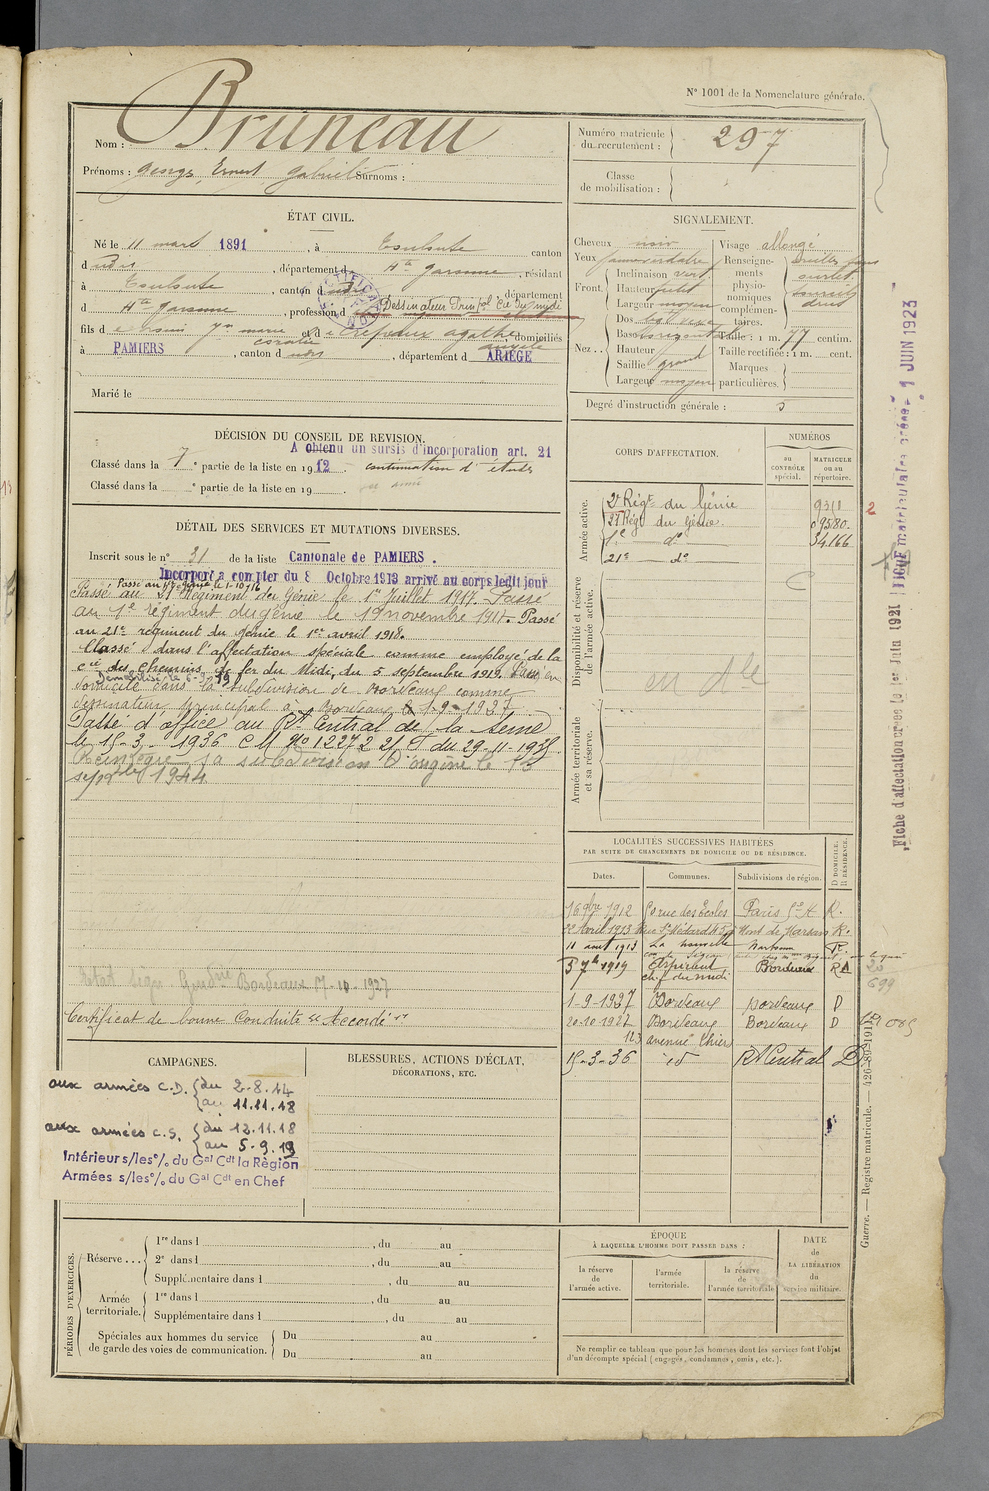 N° 1001 de la Nomenclature générale.
Nom : Bruneau
Prénoms : Georges, Ernest, Gabriel Surnoms :
Numéro matricule du recrutement : 297
Classe de mobilisation :
ÉTAT CIVIL.
Né le 11 mars 1891, à Toulouse canton
d udit, département de Hte Garonne, résidant
à Toulouse, canton d udit département
d Hte Garonne, profession d Dessinateur Prinpal Cie du midi
fils d et d Crepeaux Agathe domiciliés
à PAMIERS, canton d udit, département d ARIÈGE
Marié le
SIGNALEMENT.
Cheveux noir
Yeux jaune verdatre
Front. Inclinaison vert
Hauteur petit
Largeur moyen
Nez . . Dos
Base horizontale
Hauteur
Saillie grand
Largeur moyen
Visage allongé
Renseignements physionomiques complémentaires.
Taille : 1 m. 77 centim.
Taille rectifiée : 1 m. cent.
Marques particulières.
Degré d'instruction générale : 5
DÉCISION DU CONSEIL DE REVISION.
A obtenu un sursis d'incorporation art. 21
Classé dans la 7e partie de la liste en 1912. continuation d'études
Classé dans la e partie de la liste en 19
DÉTAIL DES SERVICES ET MUTATIONS DIVERSES.
Inscrit sous le n° 31 de la liste Cantonale de PAMIERS.
Incorporé à compter du 8 Octobre 1913 arrivé au corps ledit jour
Passé au génie le 1-10-16
Passé au 21e Régiment du Génie le 1er Juillet 1917. Passé
au 1er régiment du génie le 19 novembre 1917. Passé
au 21e régiment du génie le 1er avril 1918.
Classé dans l'affectation spéciale comme employé de la
Cie des chemins de fer du Midi, du 5 septembre 1919.
Démobilisé le 6-9-19
domicile dans la subdivision de Bordeaux comme
dessinateur principal à Bordeaux le 1-9-1927
Passé d'office au Rt Central de la Seine
le 15-3-1936 C M No 12272 du 29-11-1935
Réintègre sa subdivision d'origine le 15
septbre 1944
Bordeaux 17-10-1927
Certificat de bonne Conduite "Accordé"
CORPS D'AFFECTATION.
NUMÉROS
au CONTRÔLE spécial.
MATRICULE ou au répertoire.
Armée active.
2e Régt du Génie 9311
2e Régt du génie. 09380
1er do 34166
21e do
Disponibilité et réserve de l'armée active.
Armée territoriale et sa réserve.
LOCALITÉS SUCCESSIVES HABITÉES
PAR SUITE DE CHANGEMENTS DE DOMICILE OU DE RÉSIDENCE.
Dates. Communes. Subdivisions de région. D DOMICILE. R RÉSIDENCE.
16 9bre 1912 50 rue des Ecoles Paris R.
22 Avril 1913 Rue St Médard Mont de Marsan R.
11 aout 1913 La nouvelle Narbonne R.
5 7bre 1919 Bordeaux
ch. f. du midi
1-9-1927 Bordeaux Bordeaux D
20-10-1927 Bordeaux Bordeaux D
123 avenue Thiers
15-3-36 id Rt Central D
CAMPAGNES.
aux armées C.D. du 2.8.14
au 11.11.18
aux armées C.S. du 12.11.18
au 5.9.19
Intérieur s/les % du Gal Cdt la Région
Armées s/les % du Gal Cdt en Chef
BLESSURES, ACTIONS D'ÉCLAT,
DÉCORATIONS, ETC.
PÉRIODES D'EXERCICES.
Réserve . . . 1re dans l , du au
2e dans l , du au
Supplémentaire dans l , du au
Armée territoriale. 1re dans l , du au
Supplémentaire dans l , du au
Spéciales aux hommes du service de garde des voies de communication. Du au
Du au
ÉPOQUE
À LAQUELLE L'HOMME DOIT PASSER DANS :
la réserve de l'armée active.
l'armée territoriale.
la réserve de l'armée territoriale
DATE de LA LIBÉRATION du service militaire.
Ne remplir ce tableau que pour les hommes dont les services font l'objet
d'un décompte spécial (engagés, condamnés, omis, etc.).
Guerre. — Registre matricule. — 426-89-1911.
Fiche d'affectation créée le 1er Juin 1921
FICHE matriculaire créée 1 JUIN 1923